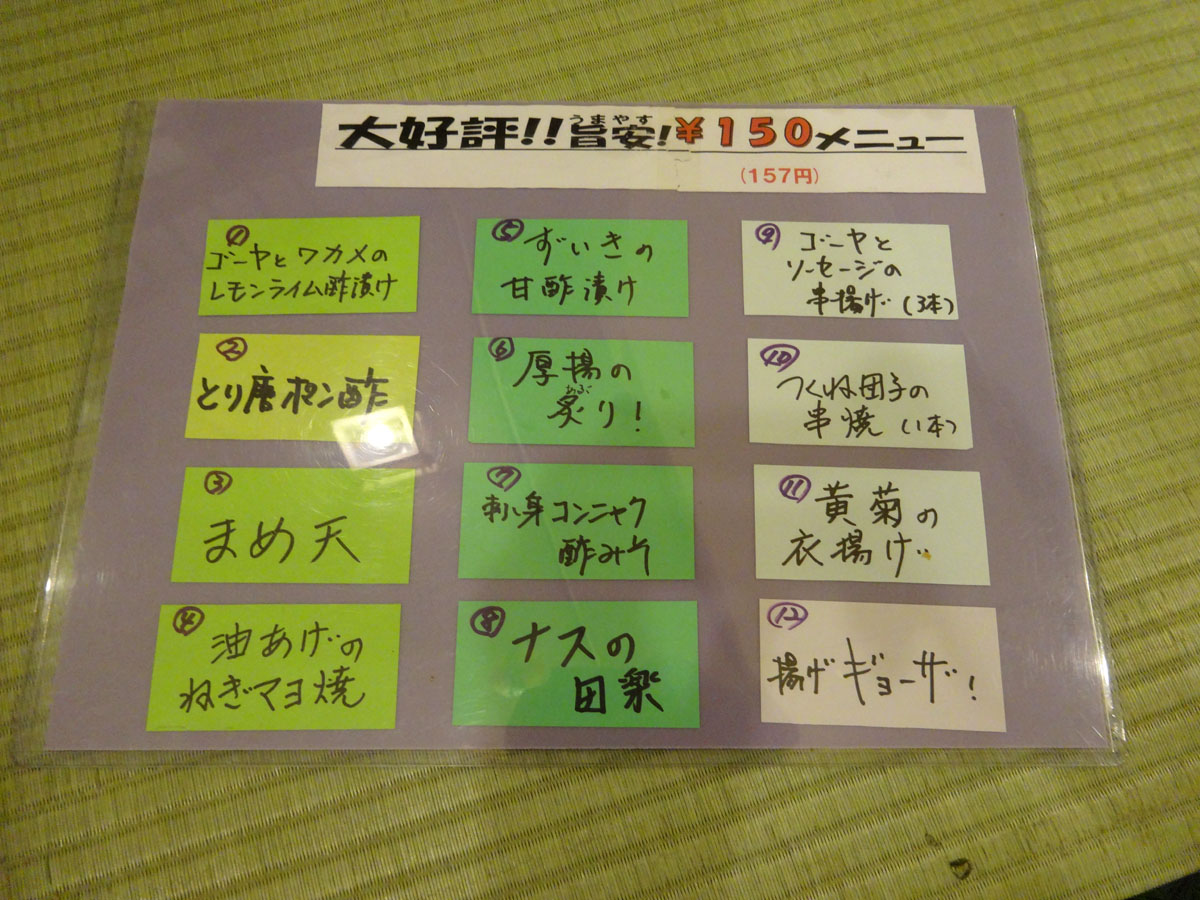 大好評!!旨安!¥150メニュー
うまやす
(157円)
①
ゴーヤとワカメの
レモンライム酢漬け
②
とり唐ポン酢
③
まめ天
④
油あげの
ねぎマヨ焼
⑤ずいきの
甘酢漬け
⑥厚揚の
あぶ
炙り!
⑦
刺身コンニャク
酢みそ
⑧ナスの
田楽
⑨ゴーヤと
ソーセージの
串揚げ(3本)
⑩
つくね団子の
串焼(1本)
⑪黄菊の
衣揚げ
⑫
揚げギョーザ!